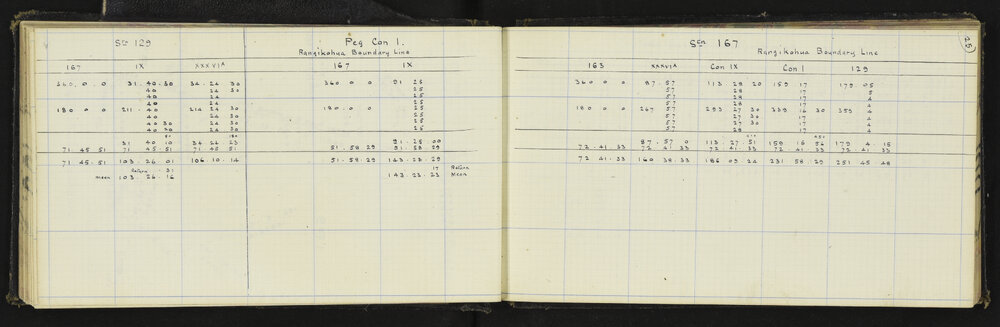 Stn 129
167 IX XXXVIA
360.0.0 31.40.30 34.24.30
40 24 30
40 24
40 24
180.0.0 211.40 214 24 30
40 24
40 30 24
40 30 24 30
31 40 10 34 24 23
71 45 51 71 45 51 71 45 51
71.45.51 103.26.01 106.10.14
Return 31
mean 103.26.16
Peg Con 1.
Rangikohua Boundary Line
167 IX
360 0 0 91 25
25
25
25
180.0.0 25
25
25
25
91.25 00
51.58 29 51 58 29
51.58 29 143.23.29
17 Return
143.23.23 Mean
25
Stn 167
Rangikohua Boundary Line
163 XXXVIA Con IX Con 1 129
360 0 0 87.57 113.28 20 159 17 179 05
57 28 17 5
57 28 17 4
57 28 17 4
180 0 0 267 57 293 27 30 339 16 30 359 4
57 27 30 17 4
57 27 30 17 4
57 28 17 4
87.57 0 113.27.51 159 16 56 179 4.15
72.41.33 72 41 33 72.41.33 72.41.33 72.41.33
72.41.33 160 38.33 186 09 24 231 58 29 251 45 48